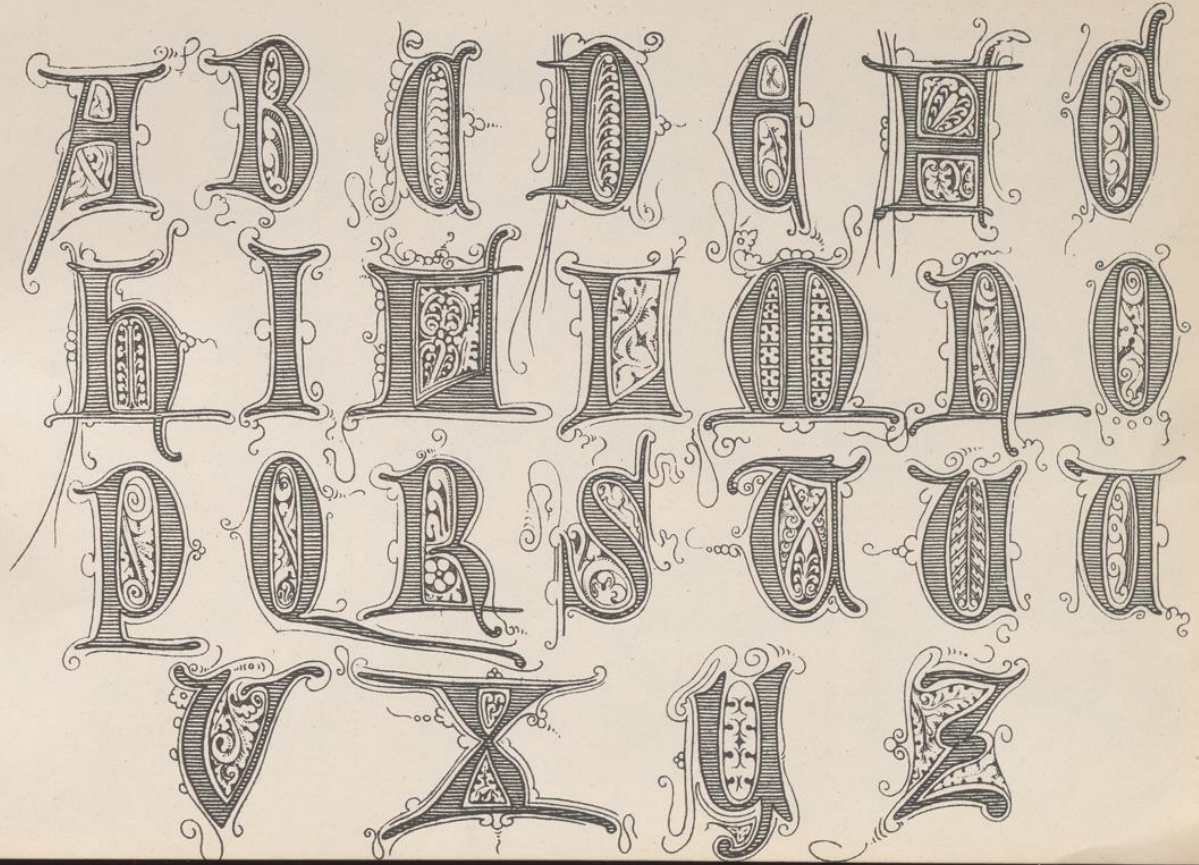 A B C D E F G
h I K L M N O
P Q R S T U U
V X Y Z